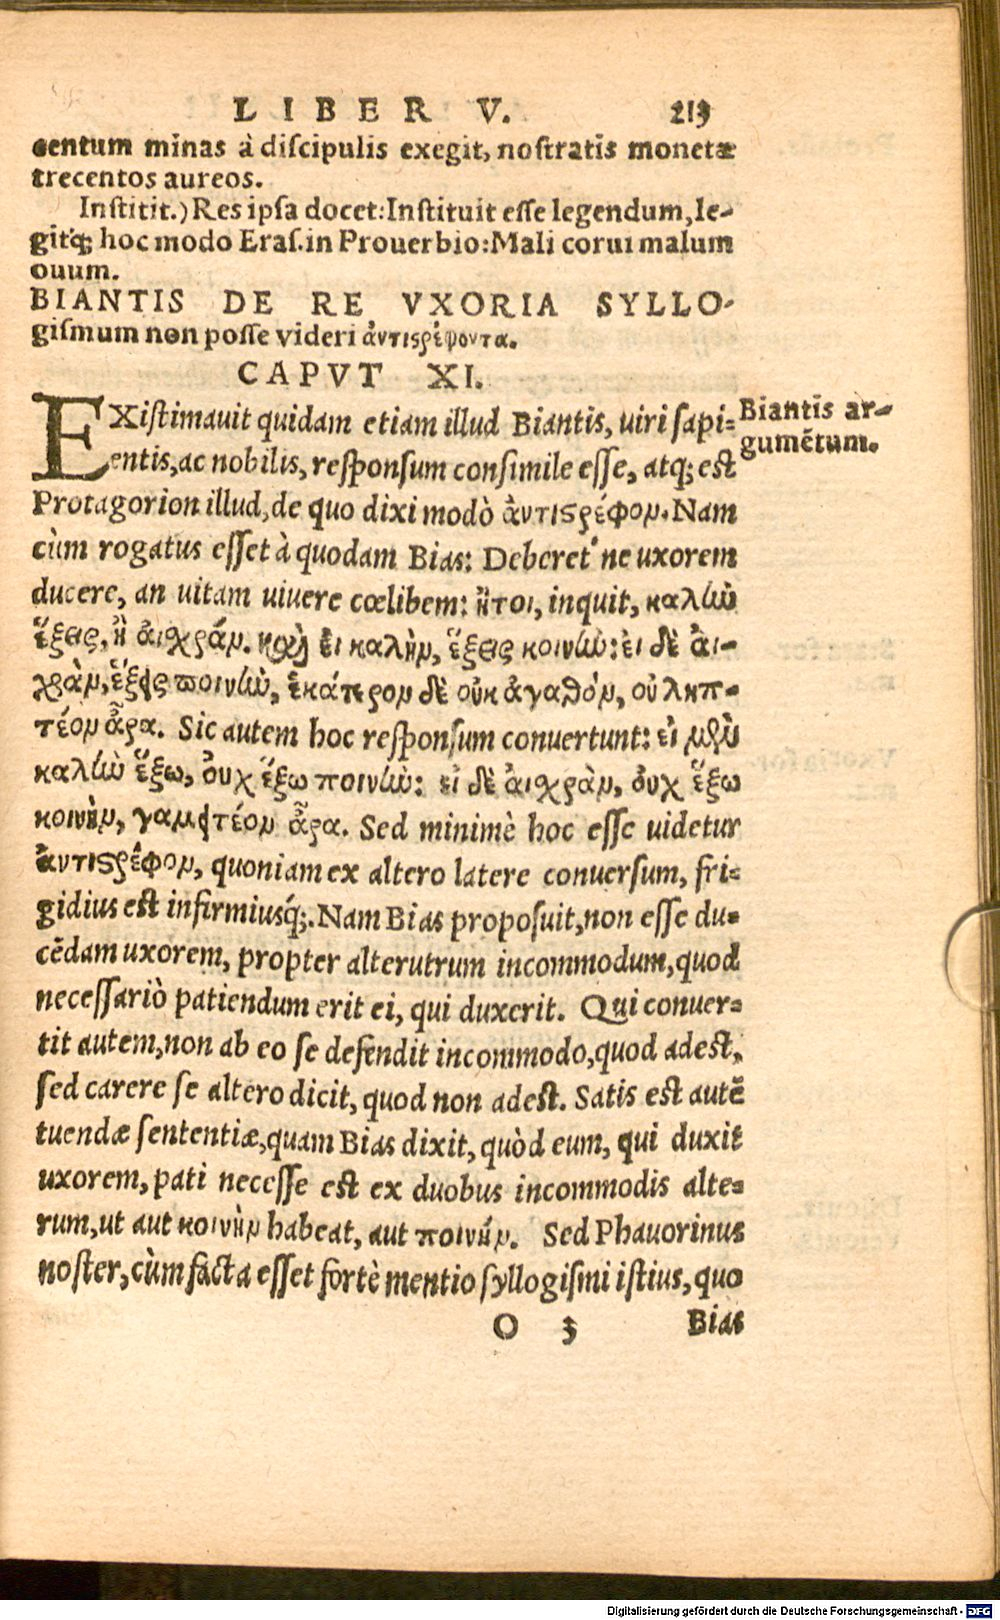 LIBER V. 213
centum minas à discipulis exegit, nostratis monetæ
trecentos aureos.
Institit.) Res ipsa docet: Instituit esse legendum, le-
gitq́; hoc modo Eras. in Prouerbio: Mali corui malum
ouum.
BIANTIS DE RE VXORIA SYLLO-
gismum non posse videri ἀντιστρέφοντα.
CAPVT XI.
EXistimauit quidam etiam illud Biantis, uiri sapi-
entis, ac nobilis, responsum consimile esse, atq; est
Protagorion illud, de quo dixi modò ἀντιστρέφον. Nam
cùm rogatus esset à quodam Bias: Deberet'ne uxorem
ducere, an uitam uiuere cœlibem: ἤτοι, inquit, καλὼ
ἕξεις, ἢ αἰχράν. καὶ ἐι καλὴν, ἕξεις κοινὼ: ἐι δὲ ἀι-
χρὰν, ἕξεις ποινὼ, ἑκάτερον δὲ οὐκ ἀγαθόν, οὐ ληπ-
τέον ἆρα. Sic autem hoc responsum conuertunt: εἰ μὲν
καλὼ ἕξω, ὀυχ ἕξω ποινὼ: εἰ δὲ ἀιχρὰν, ὀυχ ἕξω
κοινὴν, γαμητέον ἆρα. Sed minimè hoc esse uidetur
ἀντιστρέφον, quoniam ex altero latere conuersum, fri-
gidius est infirmiusq́;. Nam Bias proposuit, non esse du-
cēdam uxorem, propter alterutrum incommodum, quod
necessariò patiendum erit ei, qui duxerit. Qui conuer-
tit autem, non ab eo se defendit incommodo, quod adest,
sed carere se altero dicit, quod non adest. Satis est autē
tuendæ sententiæ, quam Bias dixit, quòd eum, qui duxit
uxorem, pati necesse est ex duobus incommodis alte-
rum, ut aut κοινὴν habeat, aut ποινήν. Sed Phauorinus
noster, cùm facta esset fortè mentio syllogismi istius, quo
O 3 Bias
Biantis ar-
gumētum.
Digitalisierung gefördert durch die Deutsche Forschungsgemeinschaft - DFG